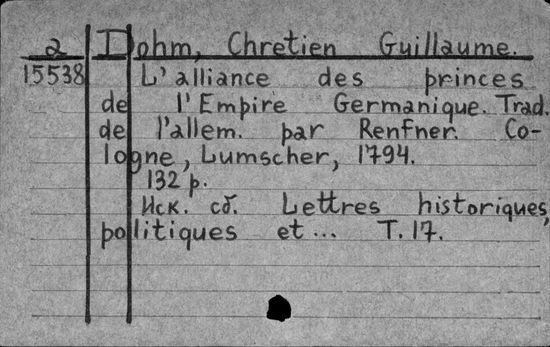 a Dohm, Chretien Guillaume.
15538 L'alliance des princes
de l'Empire Germanique. Trad.
de l'allem. par Renfner. Co-
logne, Lumscher, 1794.
132 p.
Иск. сб. Lettres historiques,
politiques et ... T. 17.